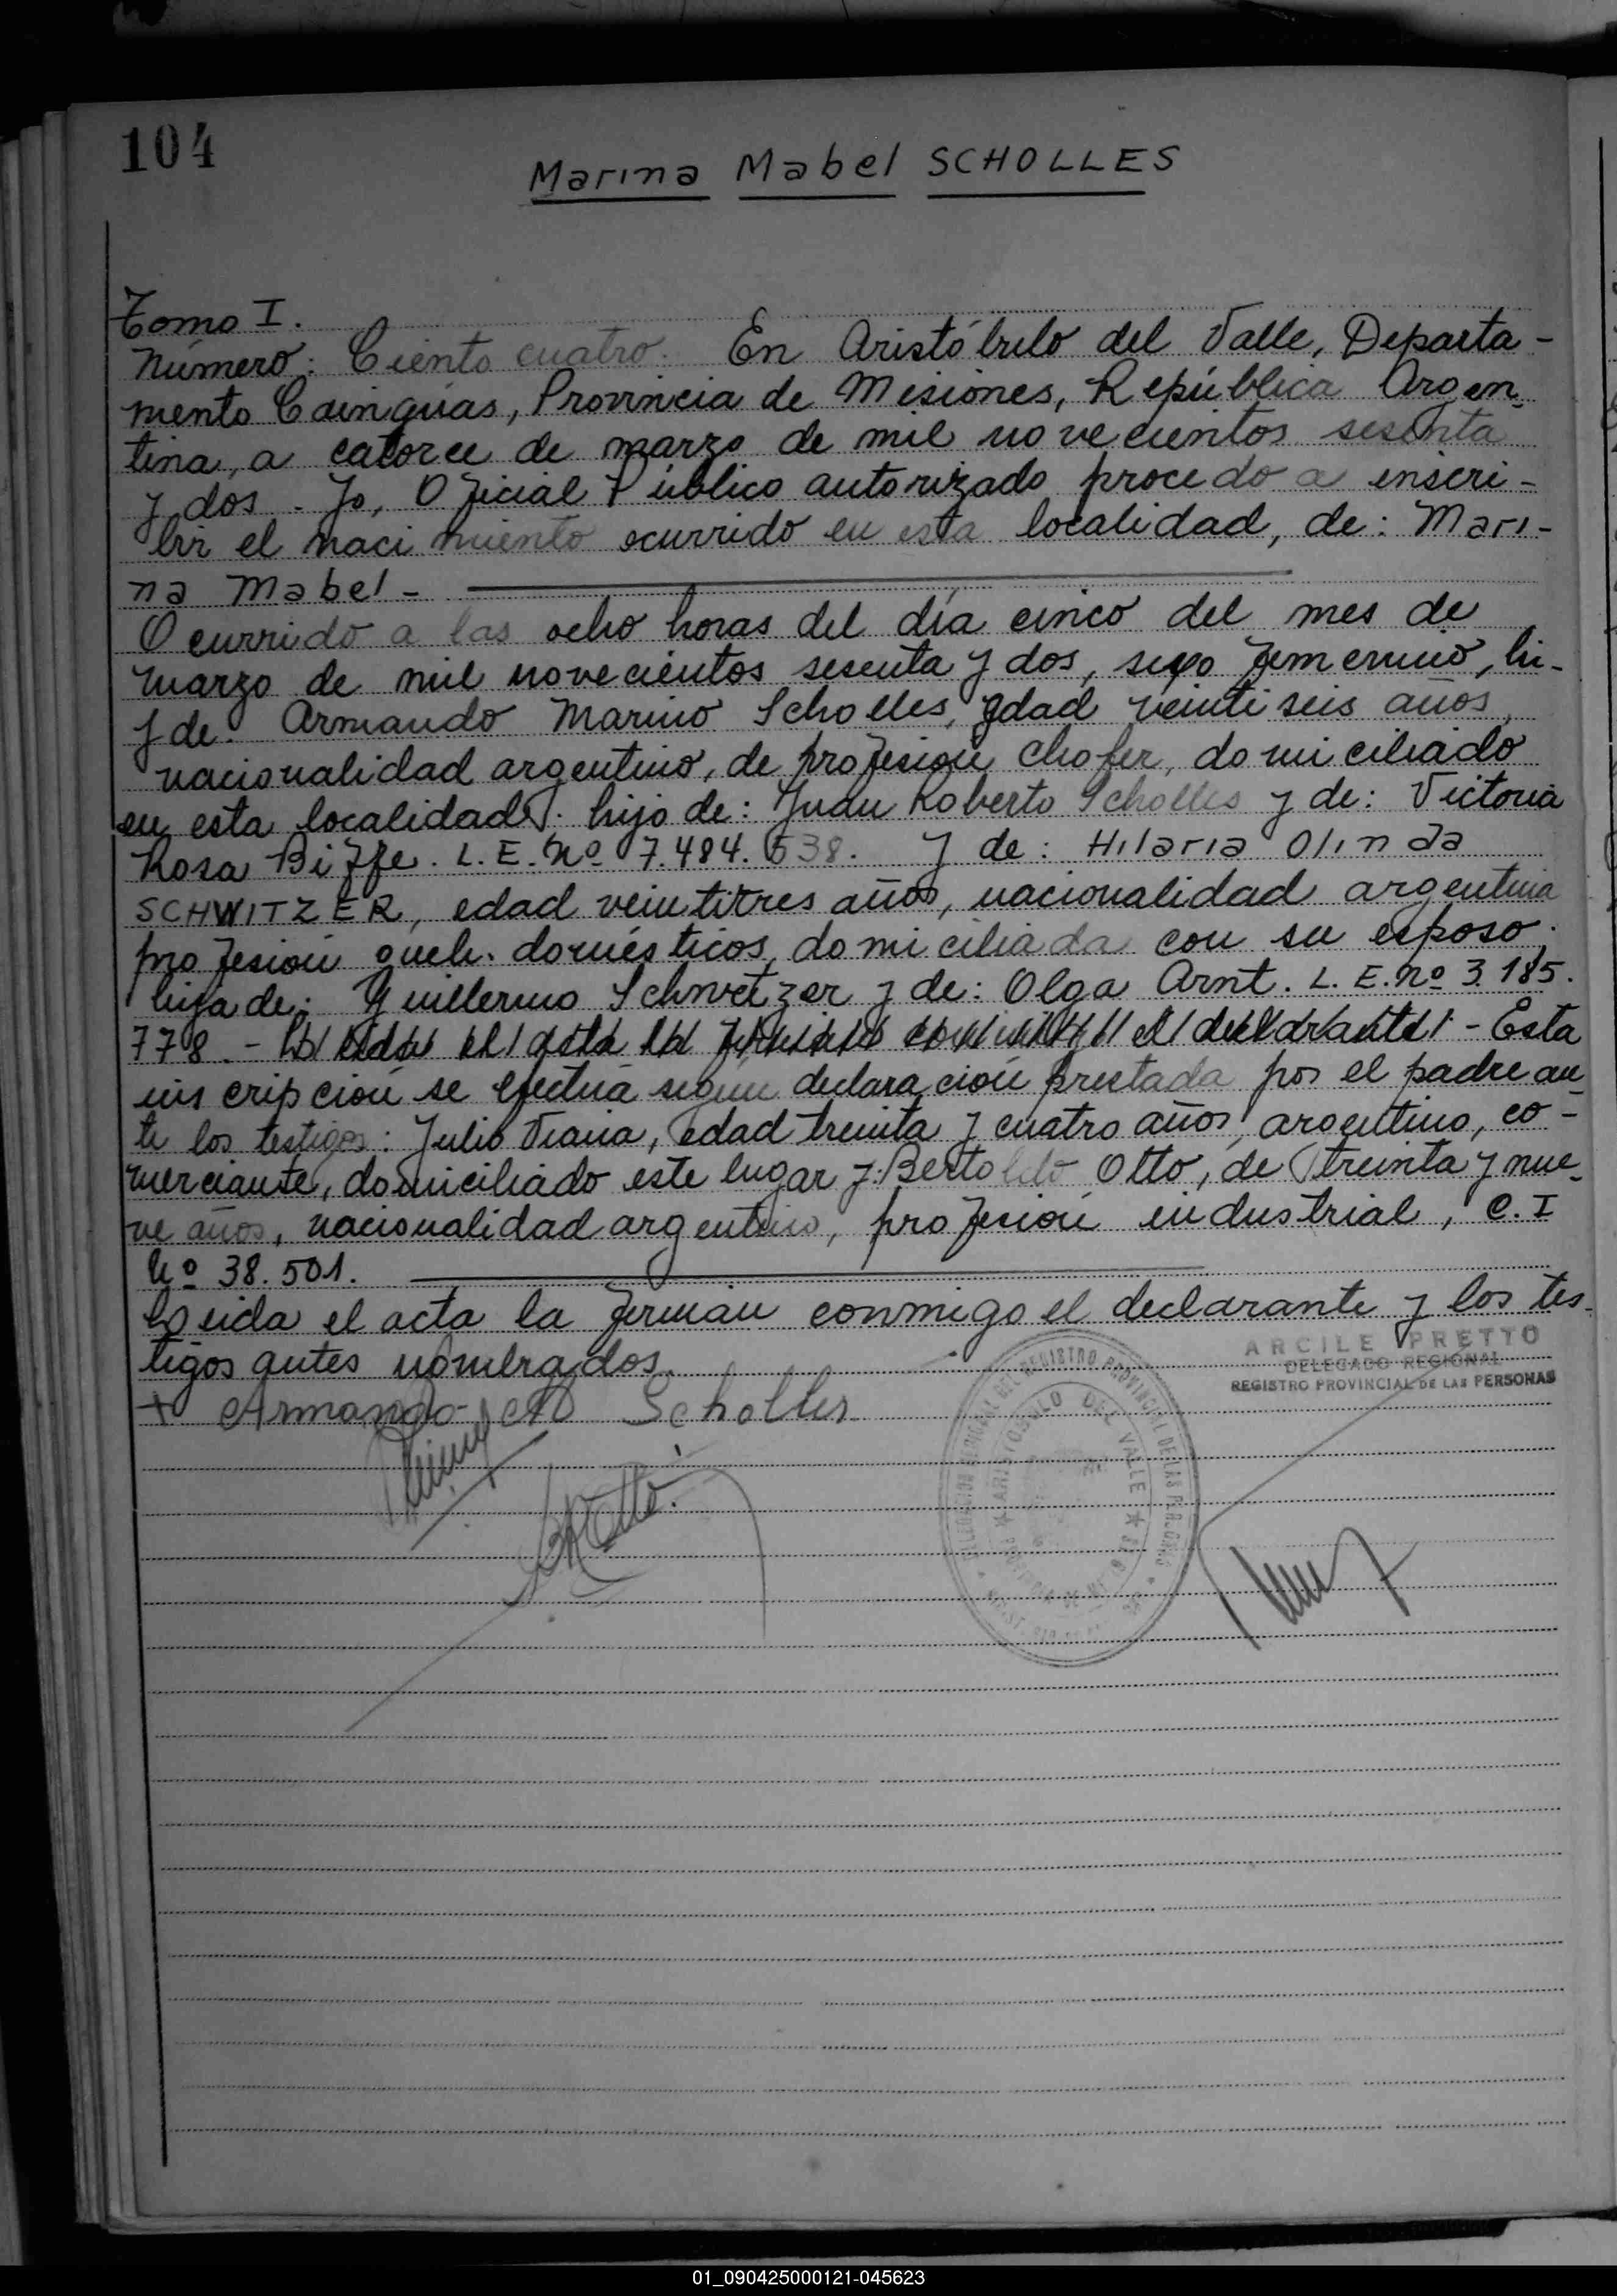 104
Marina Mabel SCHOLLES
Tomo I.
Número: Ciento cuatro. En Aristóbulo del Valle, Departa-
mento Cainguás, Provincia de Misiones, República Argen-
tina, a catorce de marzo de mil novecientos sesenta
y dos. Yo, Oficial Público autorizado procedo a inscri-
bir el nacimiento ocurrido en esta localidad, de: Mari-
na Mabel -
Ocurrido a las ocho horas del día cinco del mes de
marzo de mil novecientos sesenta y dos, sexo femenino, hi-
j de: Armando Marino Scholles, edad veintiseis años,
nacionalidad argentino, de profesión chofer, domiciliado
en esta localidad. hijo de: Juan Roberto Scholles y de: Victoria
Rosa L. E. Nº 7.484.538. y de: Hilaria Olinda
SCHWITZER, edad veintitres años, nacionalidad argentina
profesión queh. domésticos, domiciliada con su esposo.
hija de: Guillermo Schwetzer y de: Olga Arnt. L. E. Nº 3.185.
778. - Leída el acta la firman conmigo el declarante. - Esta
inscripción se efectúa según declaración prestada por el padre an
te los testigos: Julio Viana, edad treinta y cuatro años, argentino, co-
merciante, domiciliado este lugar y: Bertoldo Otto, de treinta y nue-
ve años, nacionalidad argentino, profesión industrial, C. I
Nº 38.501.
Leída el acta la firman conmigo el declarante y los tes-
tigos antes nombrados.
ARCILE PRETTO
DELEGADO REGIONAL
REGISTRO PROVINCIAL DE LAS PERSONAS
+ Armando M Scholles
REGISTRO PROVINCIAL DE LAS PERSONAS
ARISTOBULO DEL VALLE
01_090425000121-045623